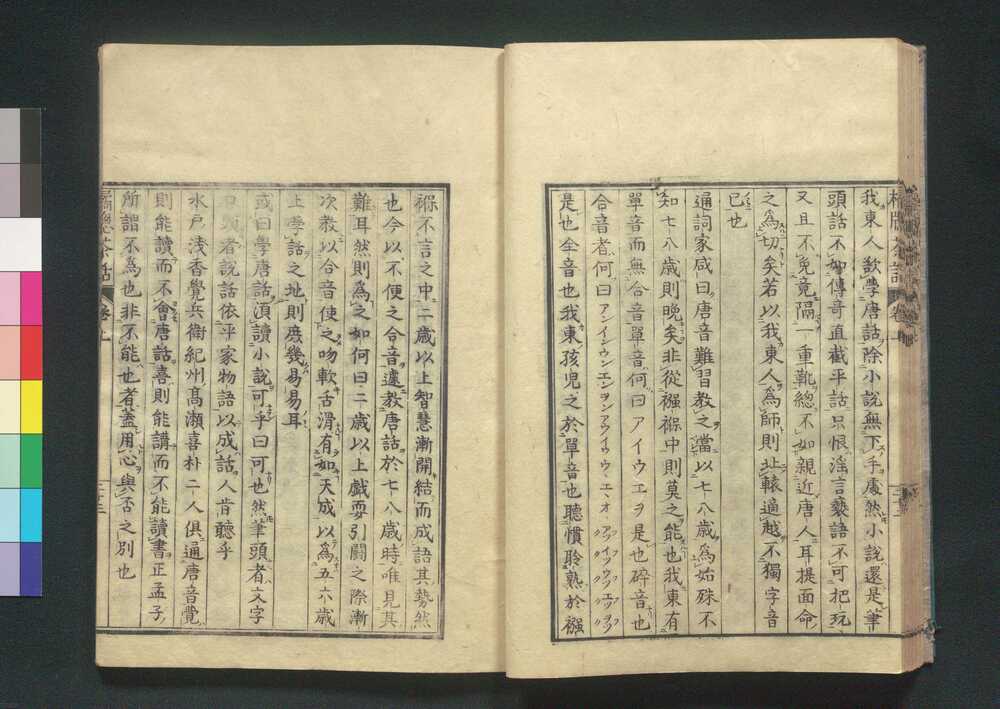 我東人欲學唐話除小說無下手處然小說還是筆
頭話不如傳奇直截平話只恨淫言褻語不可把玩
又且不免竟隔一重靴總不如親近唐人耳提面命
之為切矣若以我東人為師則北轅適越不獨字音
已也
通詞家咸曰唐音難習教之當以七八歲為始殊不
知七八歲則晚矣非從襁褓中則莫之能也我東有
單音而無合音單音何曰アイウエヲ是也碎音也
合音者何曰アンインウンエンヲンアアイイウウエエオオ
是也全音也我東孩兒之於單音也聽慣聆熟於襁
褓不言之中二歲以上智慧漸開結而成語其勢然
也今以不便之合音遽教唐話於七八歲時唯見其
難耳然則為之如何曰二歲以上戲耍引鬪之際漸
次教以合音使之吻軟舌滑有如天成以為五六歲
上學話之地則庶幾易易耳
或曰學唐話須讀小說可乎曰可也然筆頭者文字
口頭者說話依平家物語以成話人肯聽乎
水戶淺香覺兵衛紀州高瀨喜朴二人俱通唐音覺
則能讀而不會唐話喜則能講而不能讀書正孟子
所謂不為也非不能也者蓋用心與否之別也
橘窓茶話 卷上